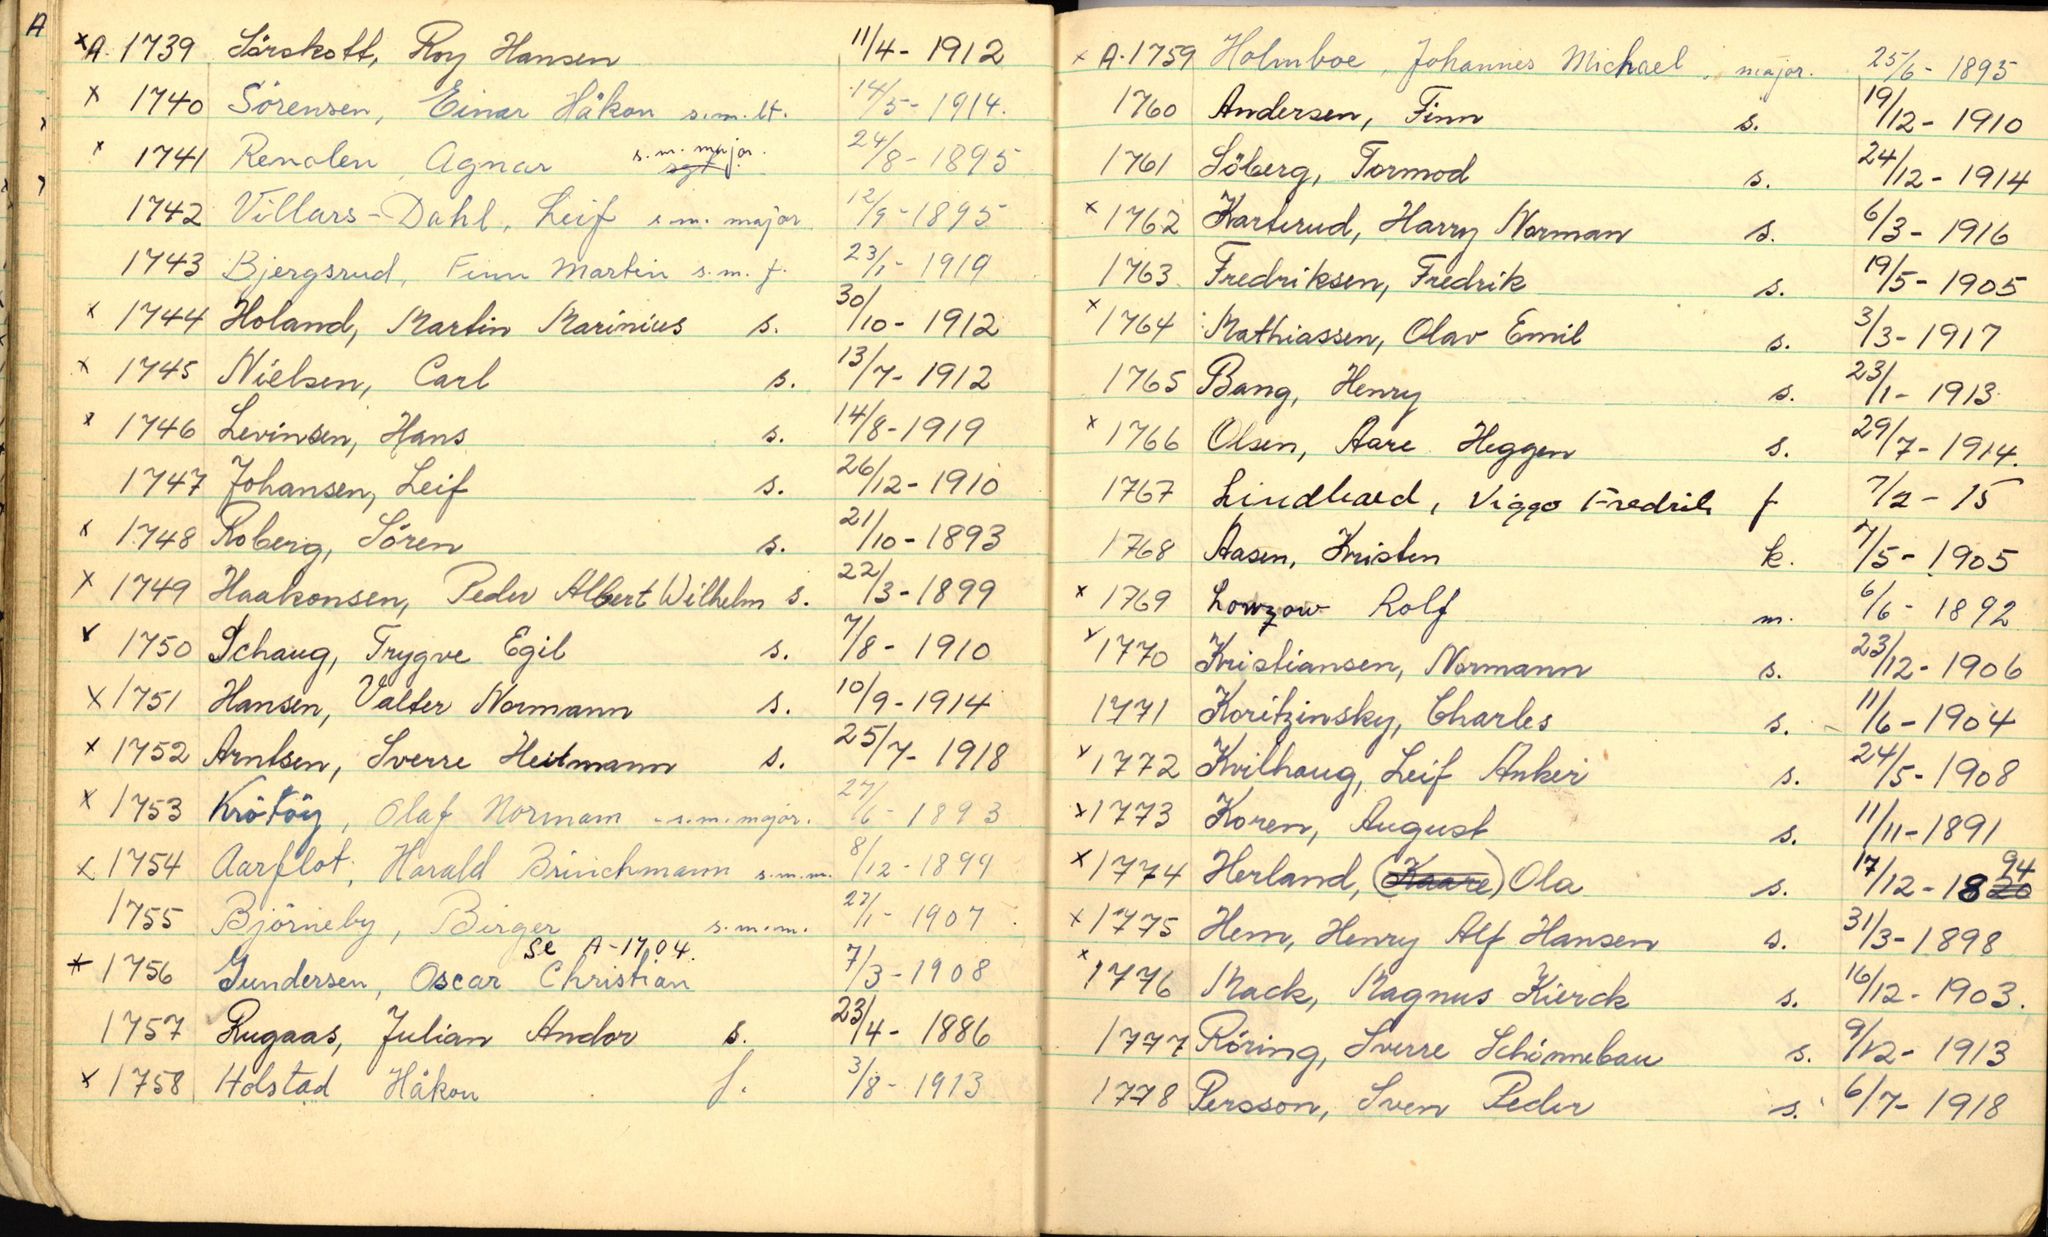 A
x A. 1739 Sörskott, Roy Hansen 11/4 - 1912
x 1740 Sörensen, Einar Håkon s.m.lt. 14/5 - 1914.
x 1741 Renolen, Agnar sgt. s.m. major. 24/8 - 1895
1742 Villars-Dahl, Leif s.m. major 12/9 - 1895
1743 Bjergsrud, Finn Martin s.m.f. 23/1 - 1919
x 1744 Holand, Martin Marinius s. 30/10 - 1912
x 1745 Nielsen, Carl s. 13/7 - 1912
x 1746 Levinsen, Hans s. 14/8 - 1919
1747 Johansen, Leif s. 26/12 - 1910
x 1748 Roberg, Sören s. 21/10 - 1893
x 1749 Haakonsen, Peder Albert Wilhelm s. 22/3 - 1899
x 1750 Schaug, Trygve Egil s. 7/8 - 1910
x 1751 Hansen, Valter Normann s. 10/9 - 1914
x 1752 Arntsen, Sverre Heitmann s. 25/7 - 1918
x 1753 Krötöy, Olaf Normann s.m. major. 27/6 - 1893
x 1754 Aarflot, Harald Brinchmann s.m.m. 8/12 - 1899
1755 Björneby, Birger s.m.m. 27/1 - 1907
Se A-1704.
x 1756 Gundersen, Oscar Christian 7/3 - 1908
1757 Rugaas, Julian Andor s. 23/4 - 1886
x 1758 Holstad Håkon f. 3/8 - 1913
x A. 1759 Holmboe, Johannes Michael, major. 25/6 - 1895
1760 Andersen, Finn s. 19/12 - 1910
1761 Söberg, Tormod s. 24/12 - 1914
x 1762 Karterud, Harry Norman s. 6/3 - 1916
1763 Fredriksen, Fredrik s. 19/5 - 1905
x 1764 Mathiassen, Olav Emil s. 3/3 - 1917
1765 Bang, Henry s. 23/1 - 1913
x 1766 Olsen, Aare Heggen s. 29/7 - 1914.
1767 Lindhard, Viggo Fredrik f 7/2 - 15
1768 Aasen, Kristen k. 7/5 - 1905
x 1769 Lowzow Rolf m. 6/6 - 1892
x 1770 Kristiansen, Normann s. 23/12 - 1906
1771 Koritzinsky, Charles s. 11/6 - 1904
x 1772 Kvilhaug, Leif Anker s. 24/5 - 1908
x 1773 Koren, August s. 11/11 - 1891
x 1774 Herland, (Kaare) Ola s. 17/12 - 18 20 94
x 1775 Hem, Henry Alf Hansen s. 31/3 - 1898
x 1776 Mack, Magnus Kierck s. 16/12 - 1903.
1777 Röring, Sverre Schönnebau s. 9/12 - 1913
1778 Persson, Sven Peder s. 6/7 - 1918